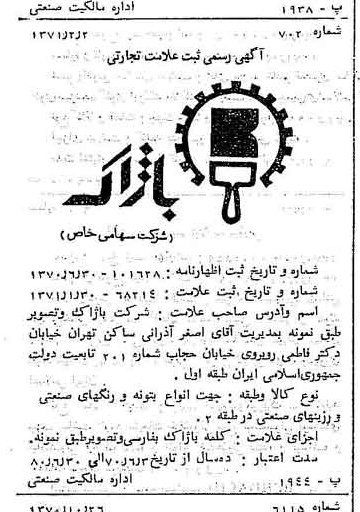 پ - ۱۹۳۸ اداره مالکیت صنعتی
شماره ۷۰۲ ۱۳۷۱/۲/۲
آگهی رسمی ثبت علامت تجارتی
باژاک
(شرکت سهامی خاص)
شماره و تاریخ ثبت اظهارنامه : ۱۰۱۶۲۸ - ۱۳۷۰/۶/۳۰
شماره و تاریخ ثبت علامت : ۶۸۲۱۴ - ۱۳۷۱/۱/۳۰
اسم وآدرس صاحب علامت : شرکت باژاک وتصویر
طبق نمونه بمدیریت آقای اصغر آذرانی ساکن تهران خیابان
دکتر فاطمی روبروی خیابان حجاب شماره ۲۰۱ تابعیت دولت
جمهوری‌اسلامی ایران طبقه اول .
نوع کالا وطبقه : جهت انواع بتونه و رنگهای صنعتی
و رزینهای صنعتی در طبقه ۲ .
اجزای علامت : کلمه باژاک بفارسی‌وتصویرطبق نمونه.
مدت اعتبار : ده‌سال از تاریخ ۷۰/۶/۳۰ الی ۸۰/۶/۳۰
پ - ۱۹۴۴ اداره مالکیت صنعتی
شماره ۶۱۱۵ ۱۳۷۰/۱۰/۲۶